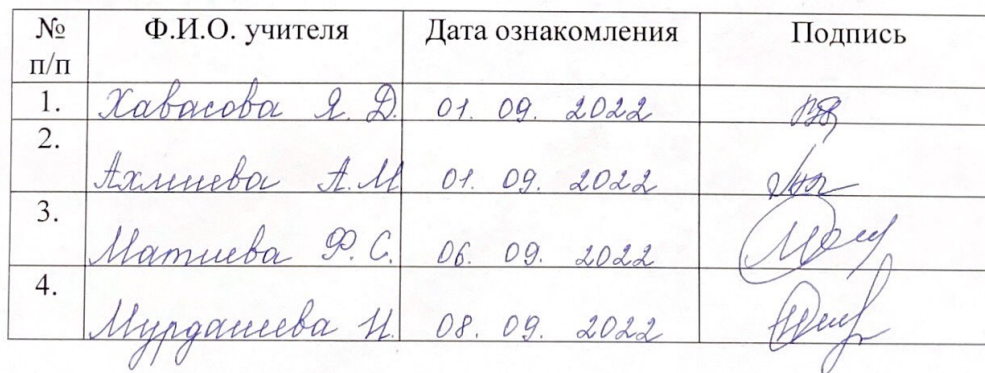 № п/п Ф.И.О. учителя Дата ознакомления Подпись
1. Хавасова Я. Д. 01. 09. 2022
2. Ахмиева А.М 01. 09. 2022
3. Матиева Ф. С. 06. 09. 2022
4. Мурдашева Н. 08. 09. 2022